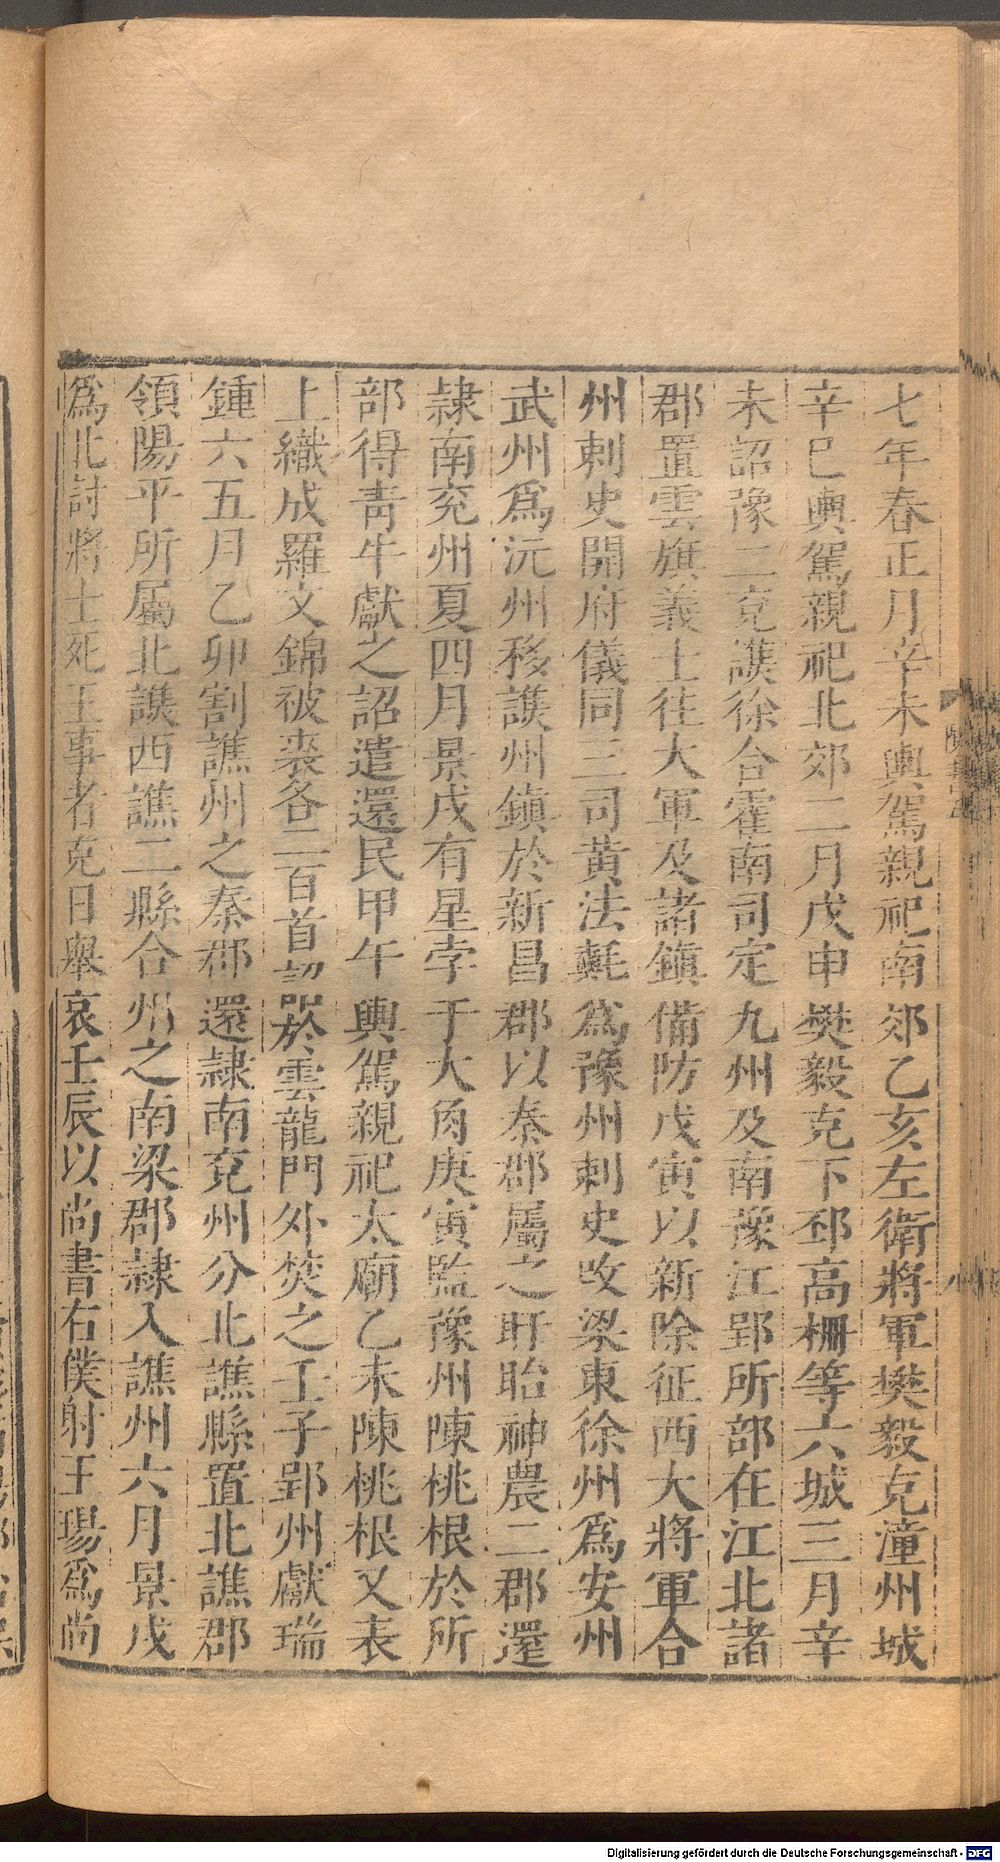 七年春正月辛未輿駕親祀南郊乙亥左衛將軍樊毅克潼州城
辛巳輿駕親祀北郊二月戊申樊毅克下邳高柵等六城三月辛
未詔豫二兗譙徐合霍南司定九州及南豫江郢所部在江北諸
郡置雲旗義士往大軍及諸鎮備防戊寅以新除征西大將軍合
州刺史開府儀同三司黃法𣰋爲豫州刺史改梁東徐州爲安州
武州爲沅州移譙州鎮於新昌郡以秦郡屬之盱眙神農二郡還
隷南兗州夏四月景戌有星孛于大角庚寅監豫州陳桃根於所
部得青牛獻之詔遣還民甲午輿駕親祀太廟乙未陳桃根又表
上織成羅文錦被裘各二百首詔於雲龍門外焚之壬子郢州獻瑞
鍾六五月乙卯割譙州之秦郡還隷南兗州分北譙縣置北譙郡
領陽平所屬北譙西譙二縣合州之南梁郡隷入譙州六月景戌
爲北討將士死王事者克日舉哀壬辰以尚書右僕射王瑒爲尚
Digitalisierung gefördert durch die Deutsche Forschungsgemeinschaft - DFG